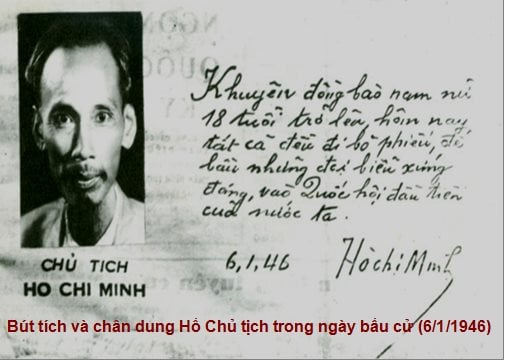 Khuyên đồng bào nam nữ
18 tuổi trở lên, hôm nay
tất cả đều đi bỏ phiếu, để
bầu những đại biểu xứng
đáng, vào Quốc hội đầu tiên
của nước ta.
6,1,46 Hồ chí Minh
CHỦ TỊCH
HO CHI MINH
Bút tích và chân dung Hồ Chủ tịch trong ngày bầu cử (6/1/1946)